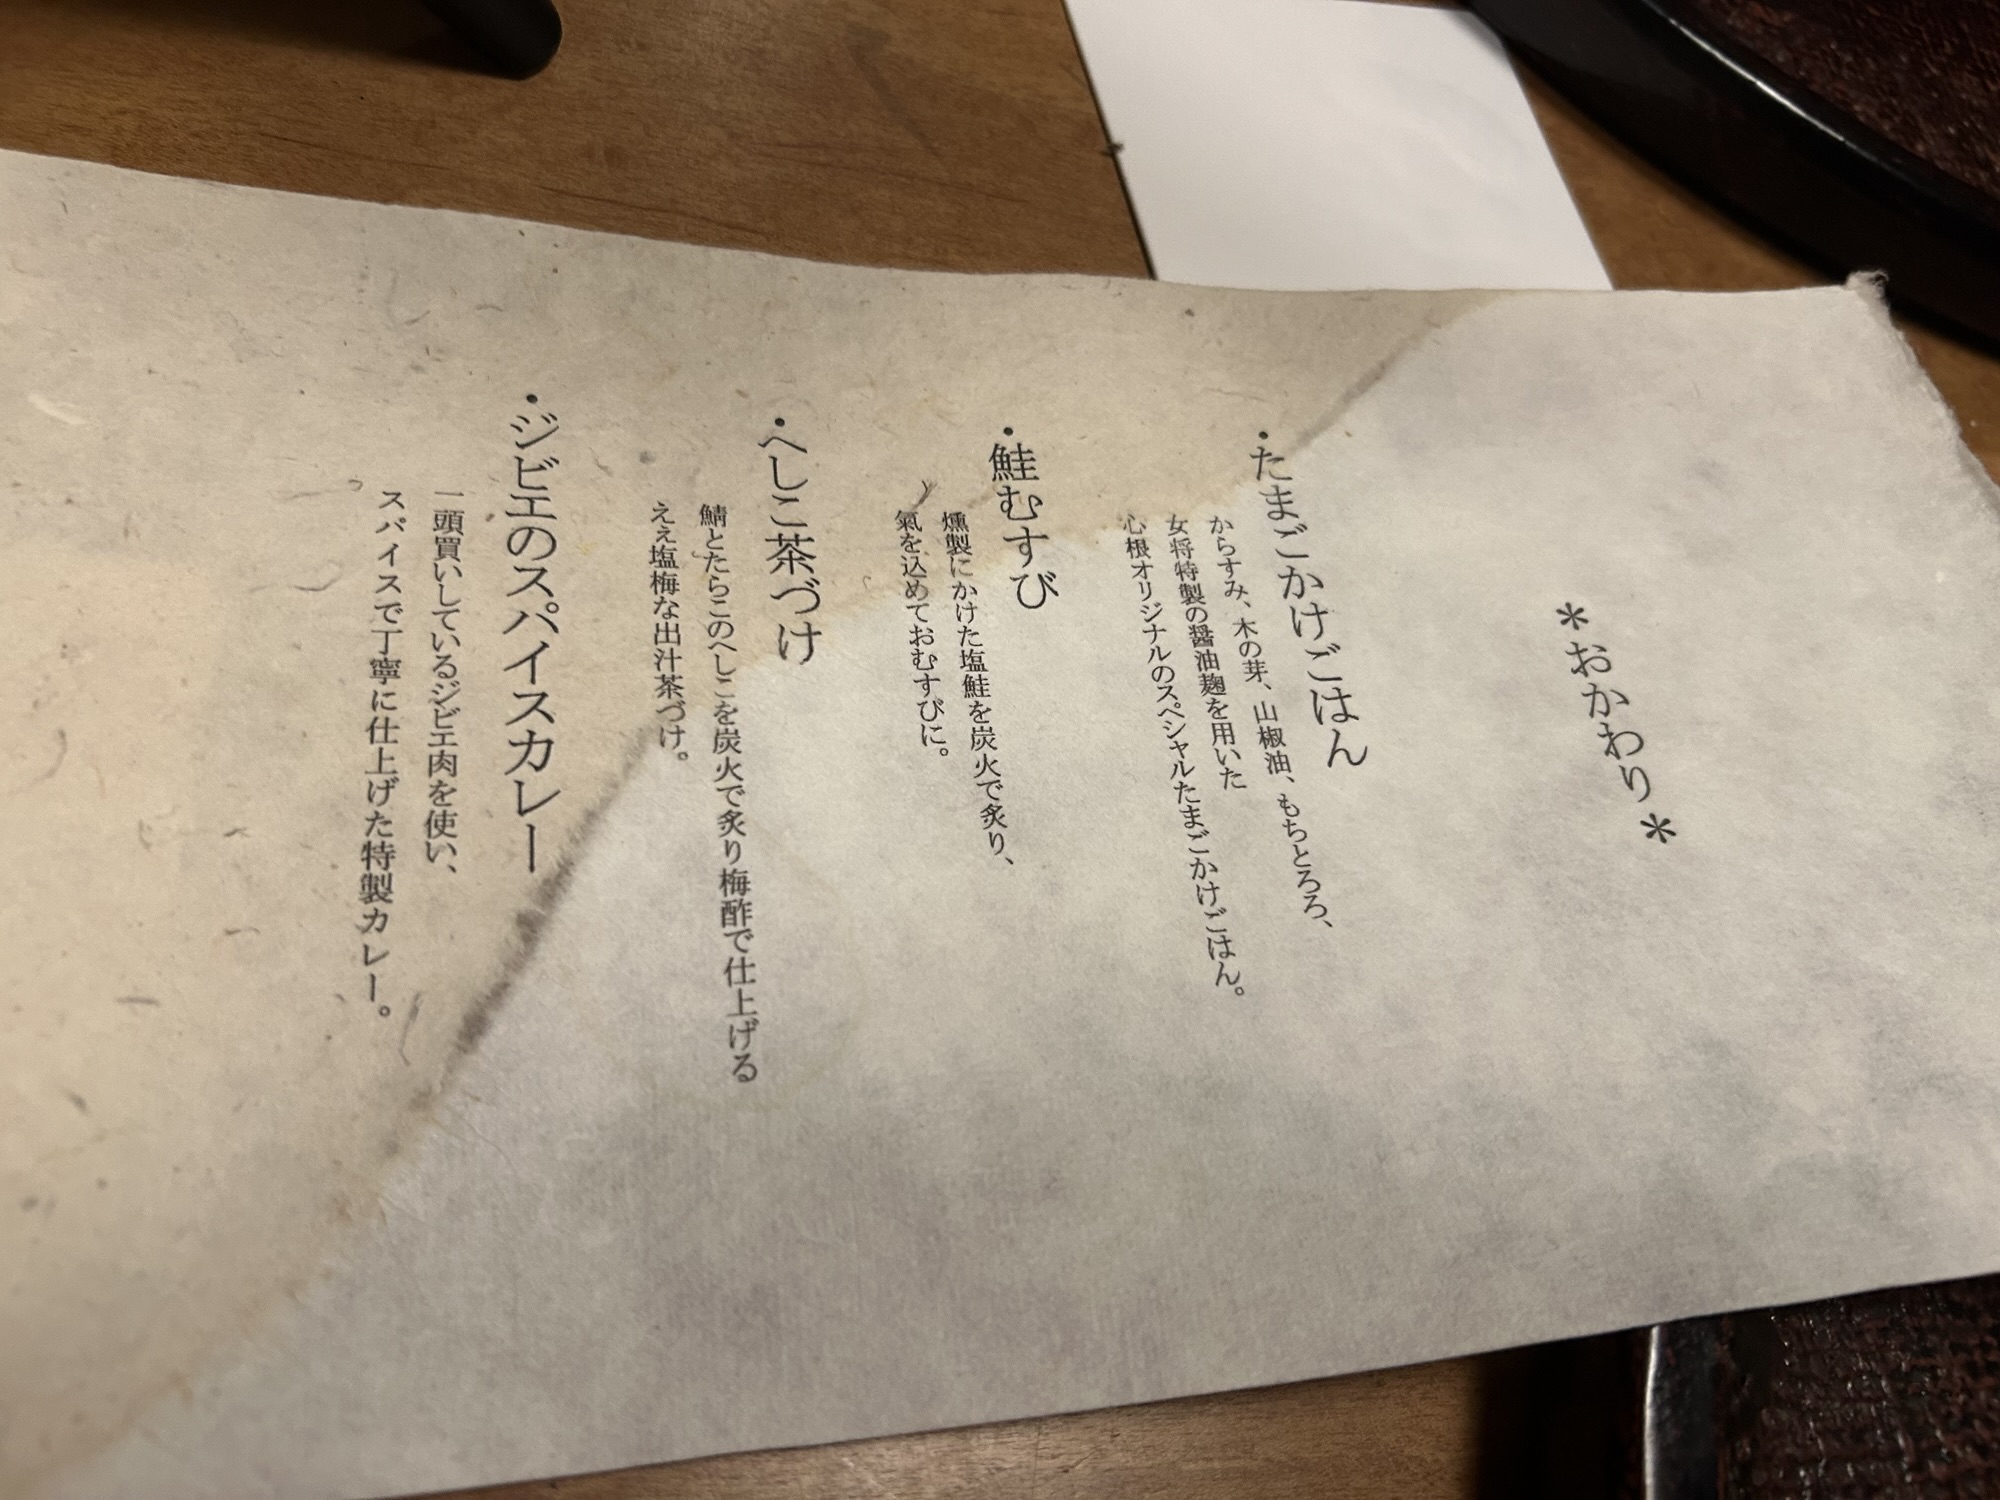 ＊おかわり＊
・たまごかけごはん
からすみ、木の芽、山椒油、もちとろろ、
女将特製の醤油麹を用いた
心根オリジナルのスペシャルたまごかけごはん。
・鮭むすび
燻製にかけた塩鮭を炭火で炙り、
氣を込めておむすびに。
・へしこ茶づけ
鯖とたらこのへしこを炭火で炙り梅酢で仕上げる
ええ塩梅な出汁茶づけ。
・ジビエのスパイスカレー
一頭買いしているジビエ肉を使い、
スパイスで丁寧に仕上げた特製カレー。